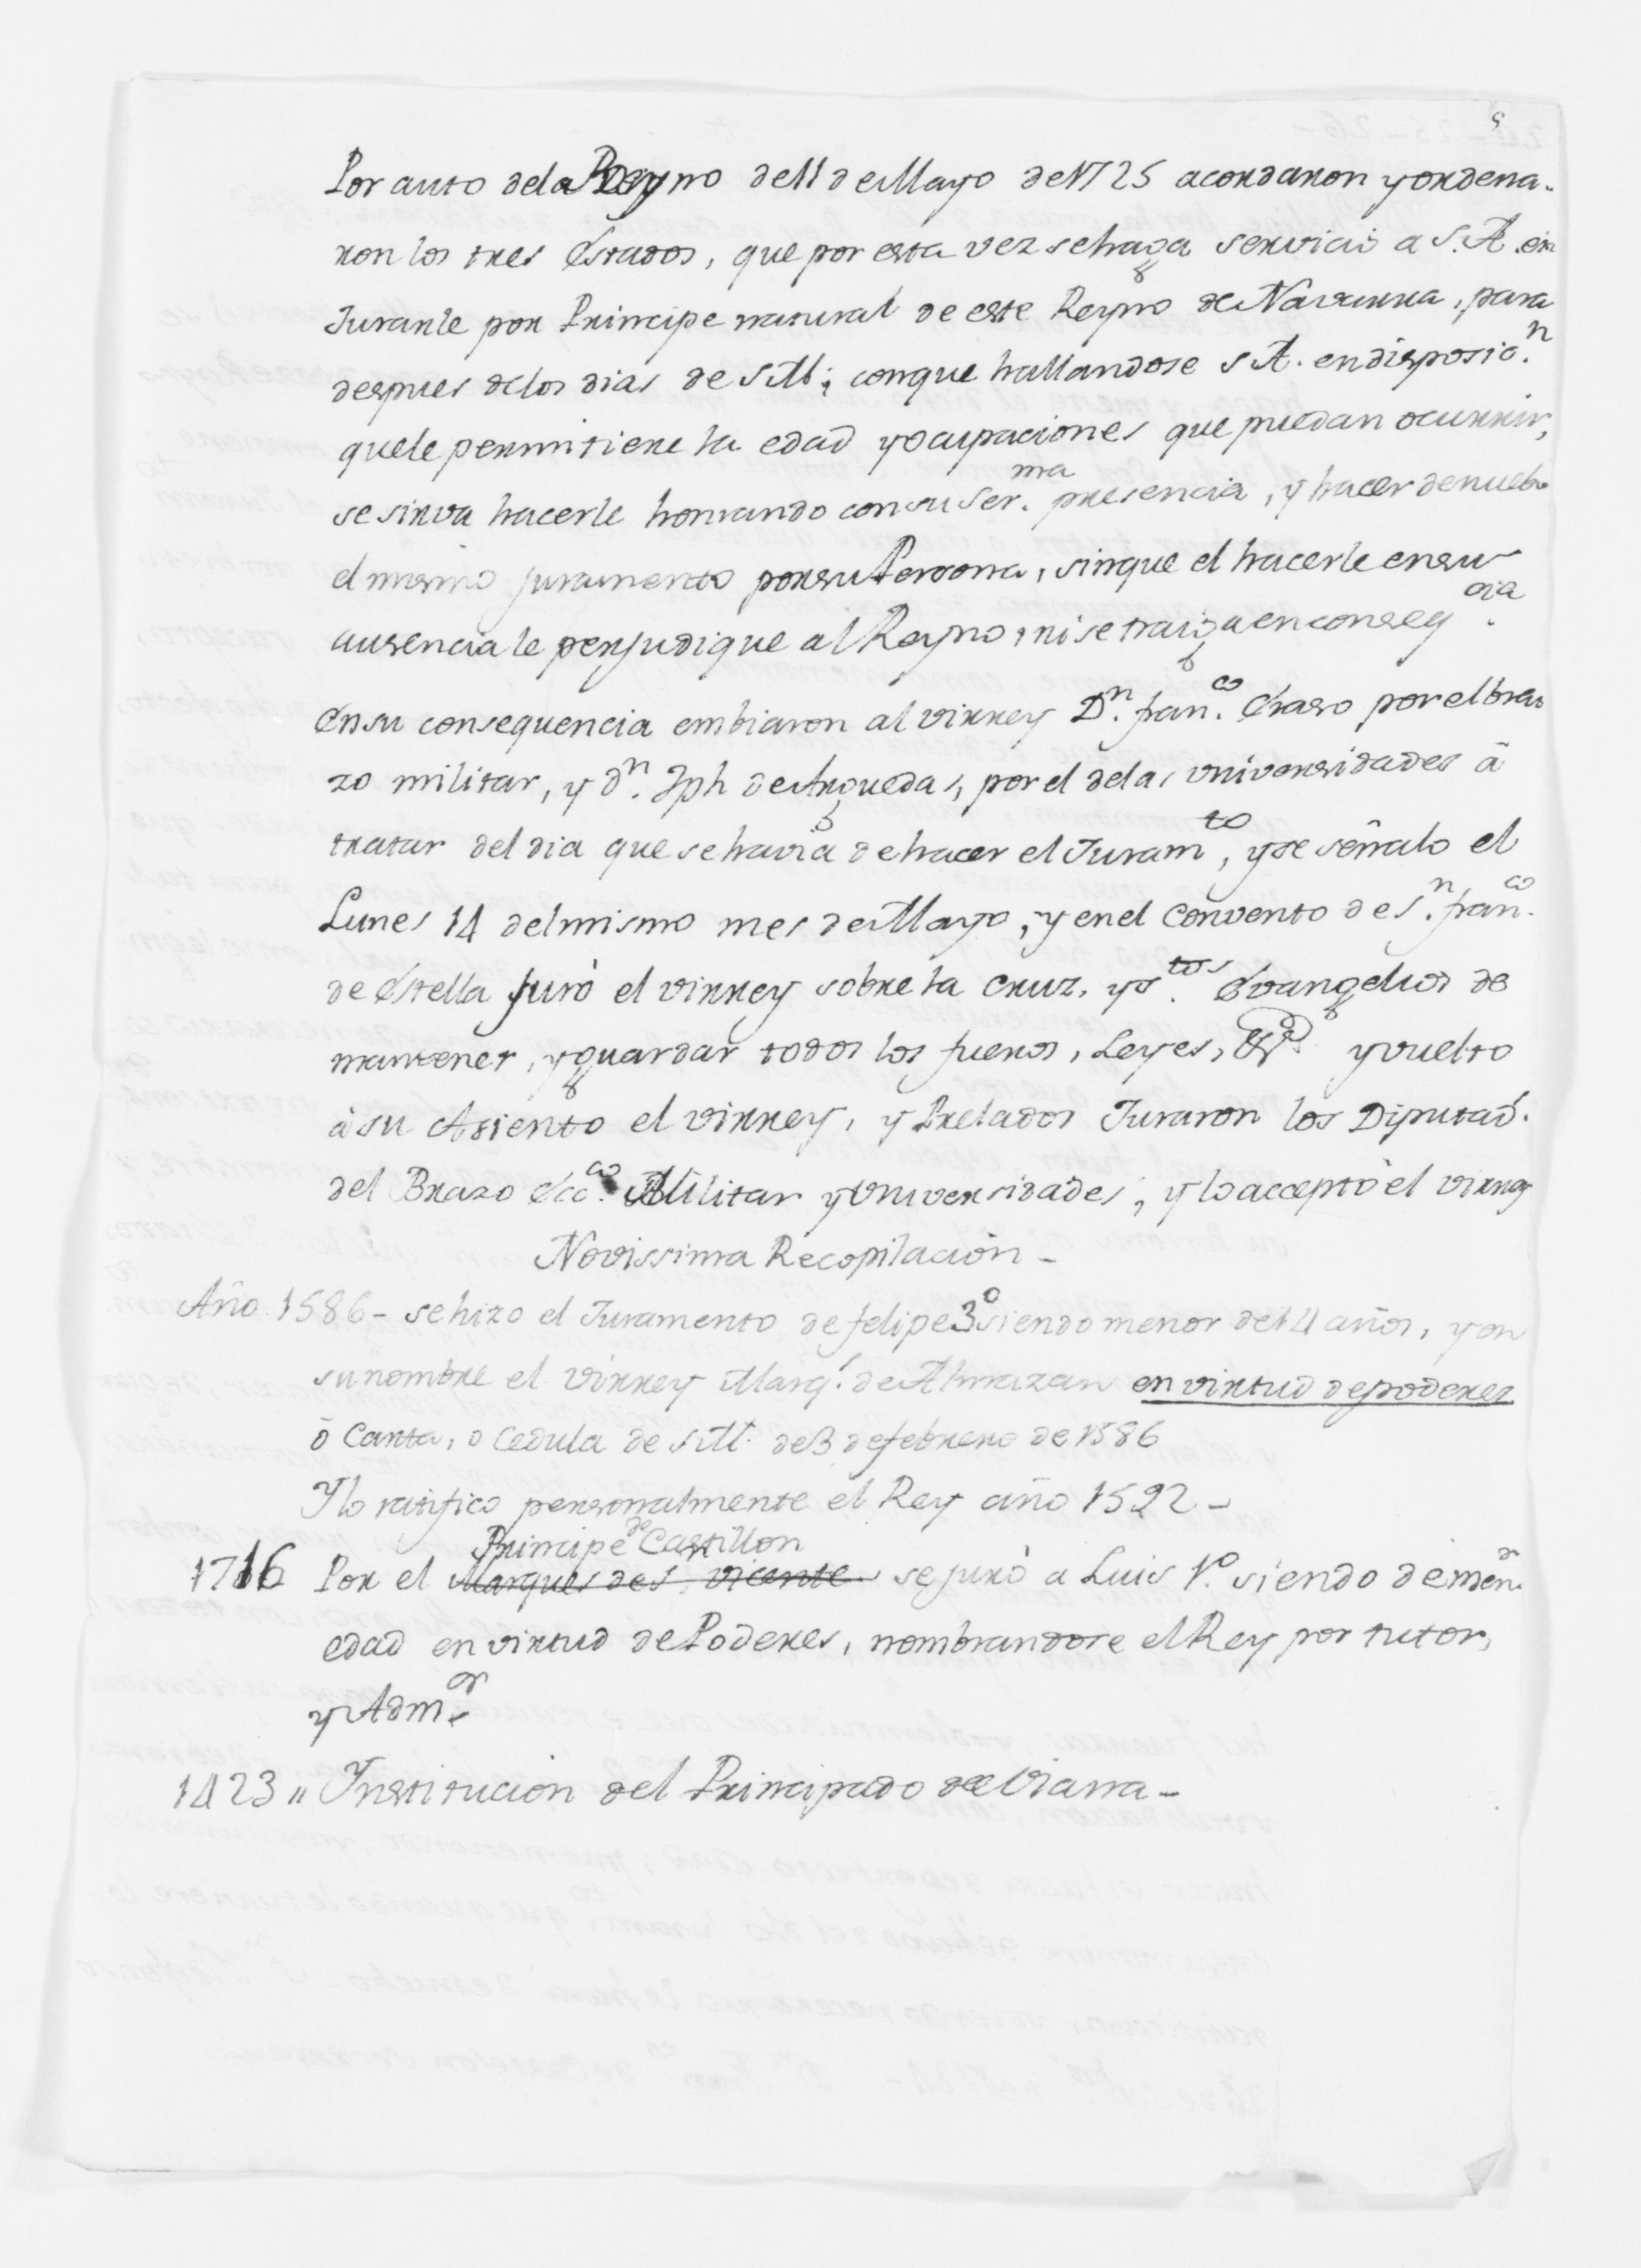 5
Por auto dela Reyno de 11 de Mayo de 1725 acordaron y ordena-
ron los tres Estados, que por esta vez se haga servicio a S. A. en
Jurarle por Principe natural de este Reyno de Navarra, para
despues delos dias de S M; conque hallandose S A. en disposic.n
quele permitiere la edad y ocupaciones que puedan ocurrir,
se sirva hacerle honrando con su Ser.ma presencia, y hacer denuebo
el mismo juramento por su Persona, sinque el hacerle en su
ausencia le perjudique al Reyno, ni se traiga en conseq.cia
En su consequencia embiaron al virrey D.n fran.co Eraso por el bra-
zo militar, y d.n Jph de Argueda s, por el dela s universidades â
tratar del dia que se havia de hacer el Juram.to, y se señalo el
Lunes 14 del mismo mes de Mayo, y en el Convento de S.n fran.co
de Estella Juró el virrey sobre la Cruz, y s.tos Evangelios de
mantener, y guardar todos los fueros, Leyes, &.a y vuelto
à su Asiento el virrey, y Prelados Juraron los Diputad.s
del Brazo Ecc.co Militar y Universidades, y lo acceptò el virrey
Novissima Recopilación -
Año 1586 - se hizo el Juramento de felipe 3º siendo menor de 14 años, y en
su nombre el Virrey Marq.s de Almazan en virtud de poderes
ò Carta, o Cedula de S M. de 3 de febrero de 1586
Y lo ratifico personalmente el Rey año 1592 -
Principe de Castillon
1716 Por el Marques de S.n Vicente se juró a Luis 1.º siendo de men.or
edad en virtud de Poderes, nombrandose el Rey por tutor,
y Adm.or
1423 " Institucion del Principado de Viana -